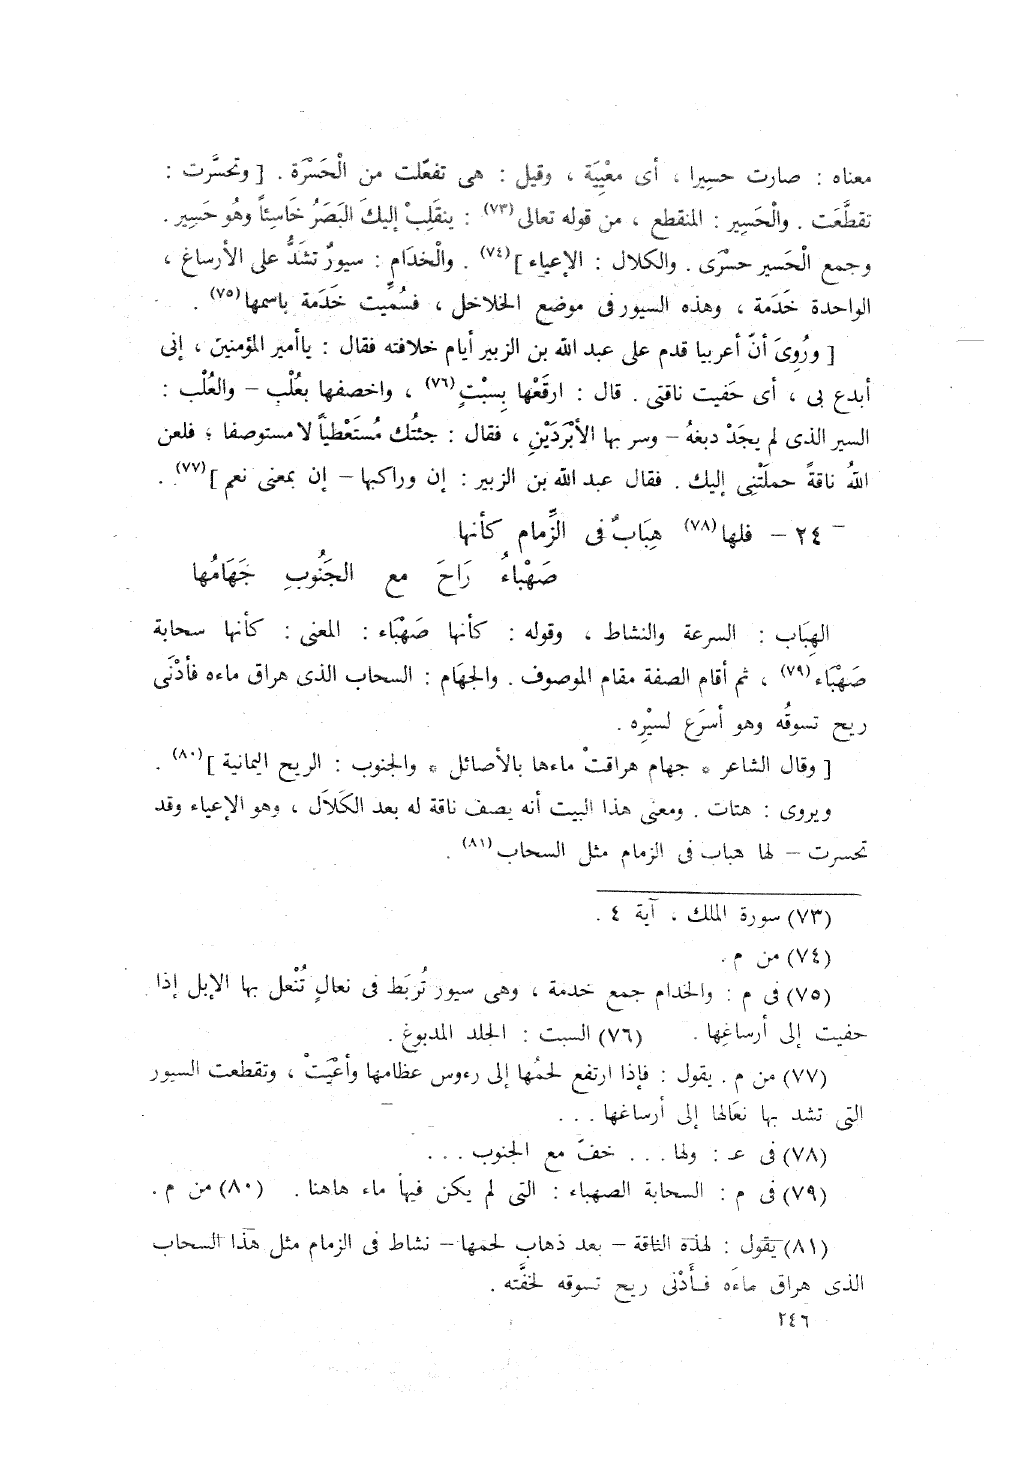 معناه : صارت حسيرا ، أى معْيِيَة ، وقيل : هى تفعّلت من الْحَسْرَة . [ وتحسَّرت :
تقطَّعَت . والْحَسِير : المنقطع ، من قوله تعالى (٧٣) : ينقَلِبْ إليكَ البَصَرُ خَاسِئاً وهُو حَسِير .
وجمع الْحَسير حسْرَى . والكلال : الإعياء ] (٧٤) . والْخدَام : سيورٌ تشَدُّ على الأرساغ ،
الواحدة خَدَمة ، وهذه السيور فى موضع الخلاخل ، فسُمِّيت خَدَمة باسمها (٧٥) .
[ ورُوِىَ أنّ أعربيا قدم على عبد الله بن الزبير أيام خلافته فقال : ياأمير المؤمنين ، إنى
أبدع بى ، أى حَفيت ناقتى . قال : ارقَعْها بِسبْتٍ (٧٦) ، واخصفها بعُلْب – والعُلْب :
السير الذى لم يجَدْ دبغهُ – وسر بها الأبْرَدَيْنِ ، فقال : جئتُك مُستَعْطياً لا مستوصفا ؛ فلعن
اللهُ ناقةً حملَتْنِى إليك . فقال عبد الله بن الزبير : إن وراكبها – إن بمعنى نعم ] (٧٧) .
٢٤ – فلها (٧٨) هِبَابٌ فى الزِّمام كأنها
صَهْباءُ رَاحَ مع الجَنُوبِ جَهَامُها
الهِبَاب : السرعة والنشاط ، وقوله : كأنها صَهْبَاء : المعنى : كأنها سحابة
صَهْبَاء (٧٩) ، ثم أقام الصفة مقام الموصوف . والجهَام : السحاب الذى هراق ماءه فأدْنَى
ريح تسوقُه وهو أسرَع لسيْرِه .
[ وقال الشاعر * جهام هراقتْ ماءها بالأصائل * والجنوب : الريح اليمانية ] (٨٠) .
ويروى : هتات . ومعنى هذا البيت أنه يصف ناقة له بعد الكَلاَل ، وهو الإعياء وقد
تحسرت – لها هباب فى الزمام مثل السحاب (٨١) .
(٧٣) سورة الملك ، آية ٤ .
(٧٤) من م .
(٧٥) فى م : والخدام جمع خدمة ، وهى سيور تُربَط فى نعالٍ تُنْعل بها الإبل إذا
حفيت إلى أرساغِها . (٧٦) السبت : الجلد المدبوغ .
(٧٧) من م . يقول : فإذا ارتفع لحمُها إلى رءوس عظامها وأعْيَتْ ، وتقطعت السيور
التى تشد بها نعَالها إلى أرساغها . . .
(٧٨) فى ع : ولها . . . خفّ مع الجنوب . . .
(٧٩) فى م : السحابة الصهباء : التى لم يكن فيها ماء هاهنا . (٨٠) من م .
(٨١) يقول : لهذه الناقة – بعد ذهاب لحمها – نشاط فى الزمام مثل هذا السحاب
الذى هراق ماءَه فأَدْنى ريح تسوقه لخفَّته .
٢٤٦